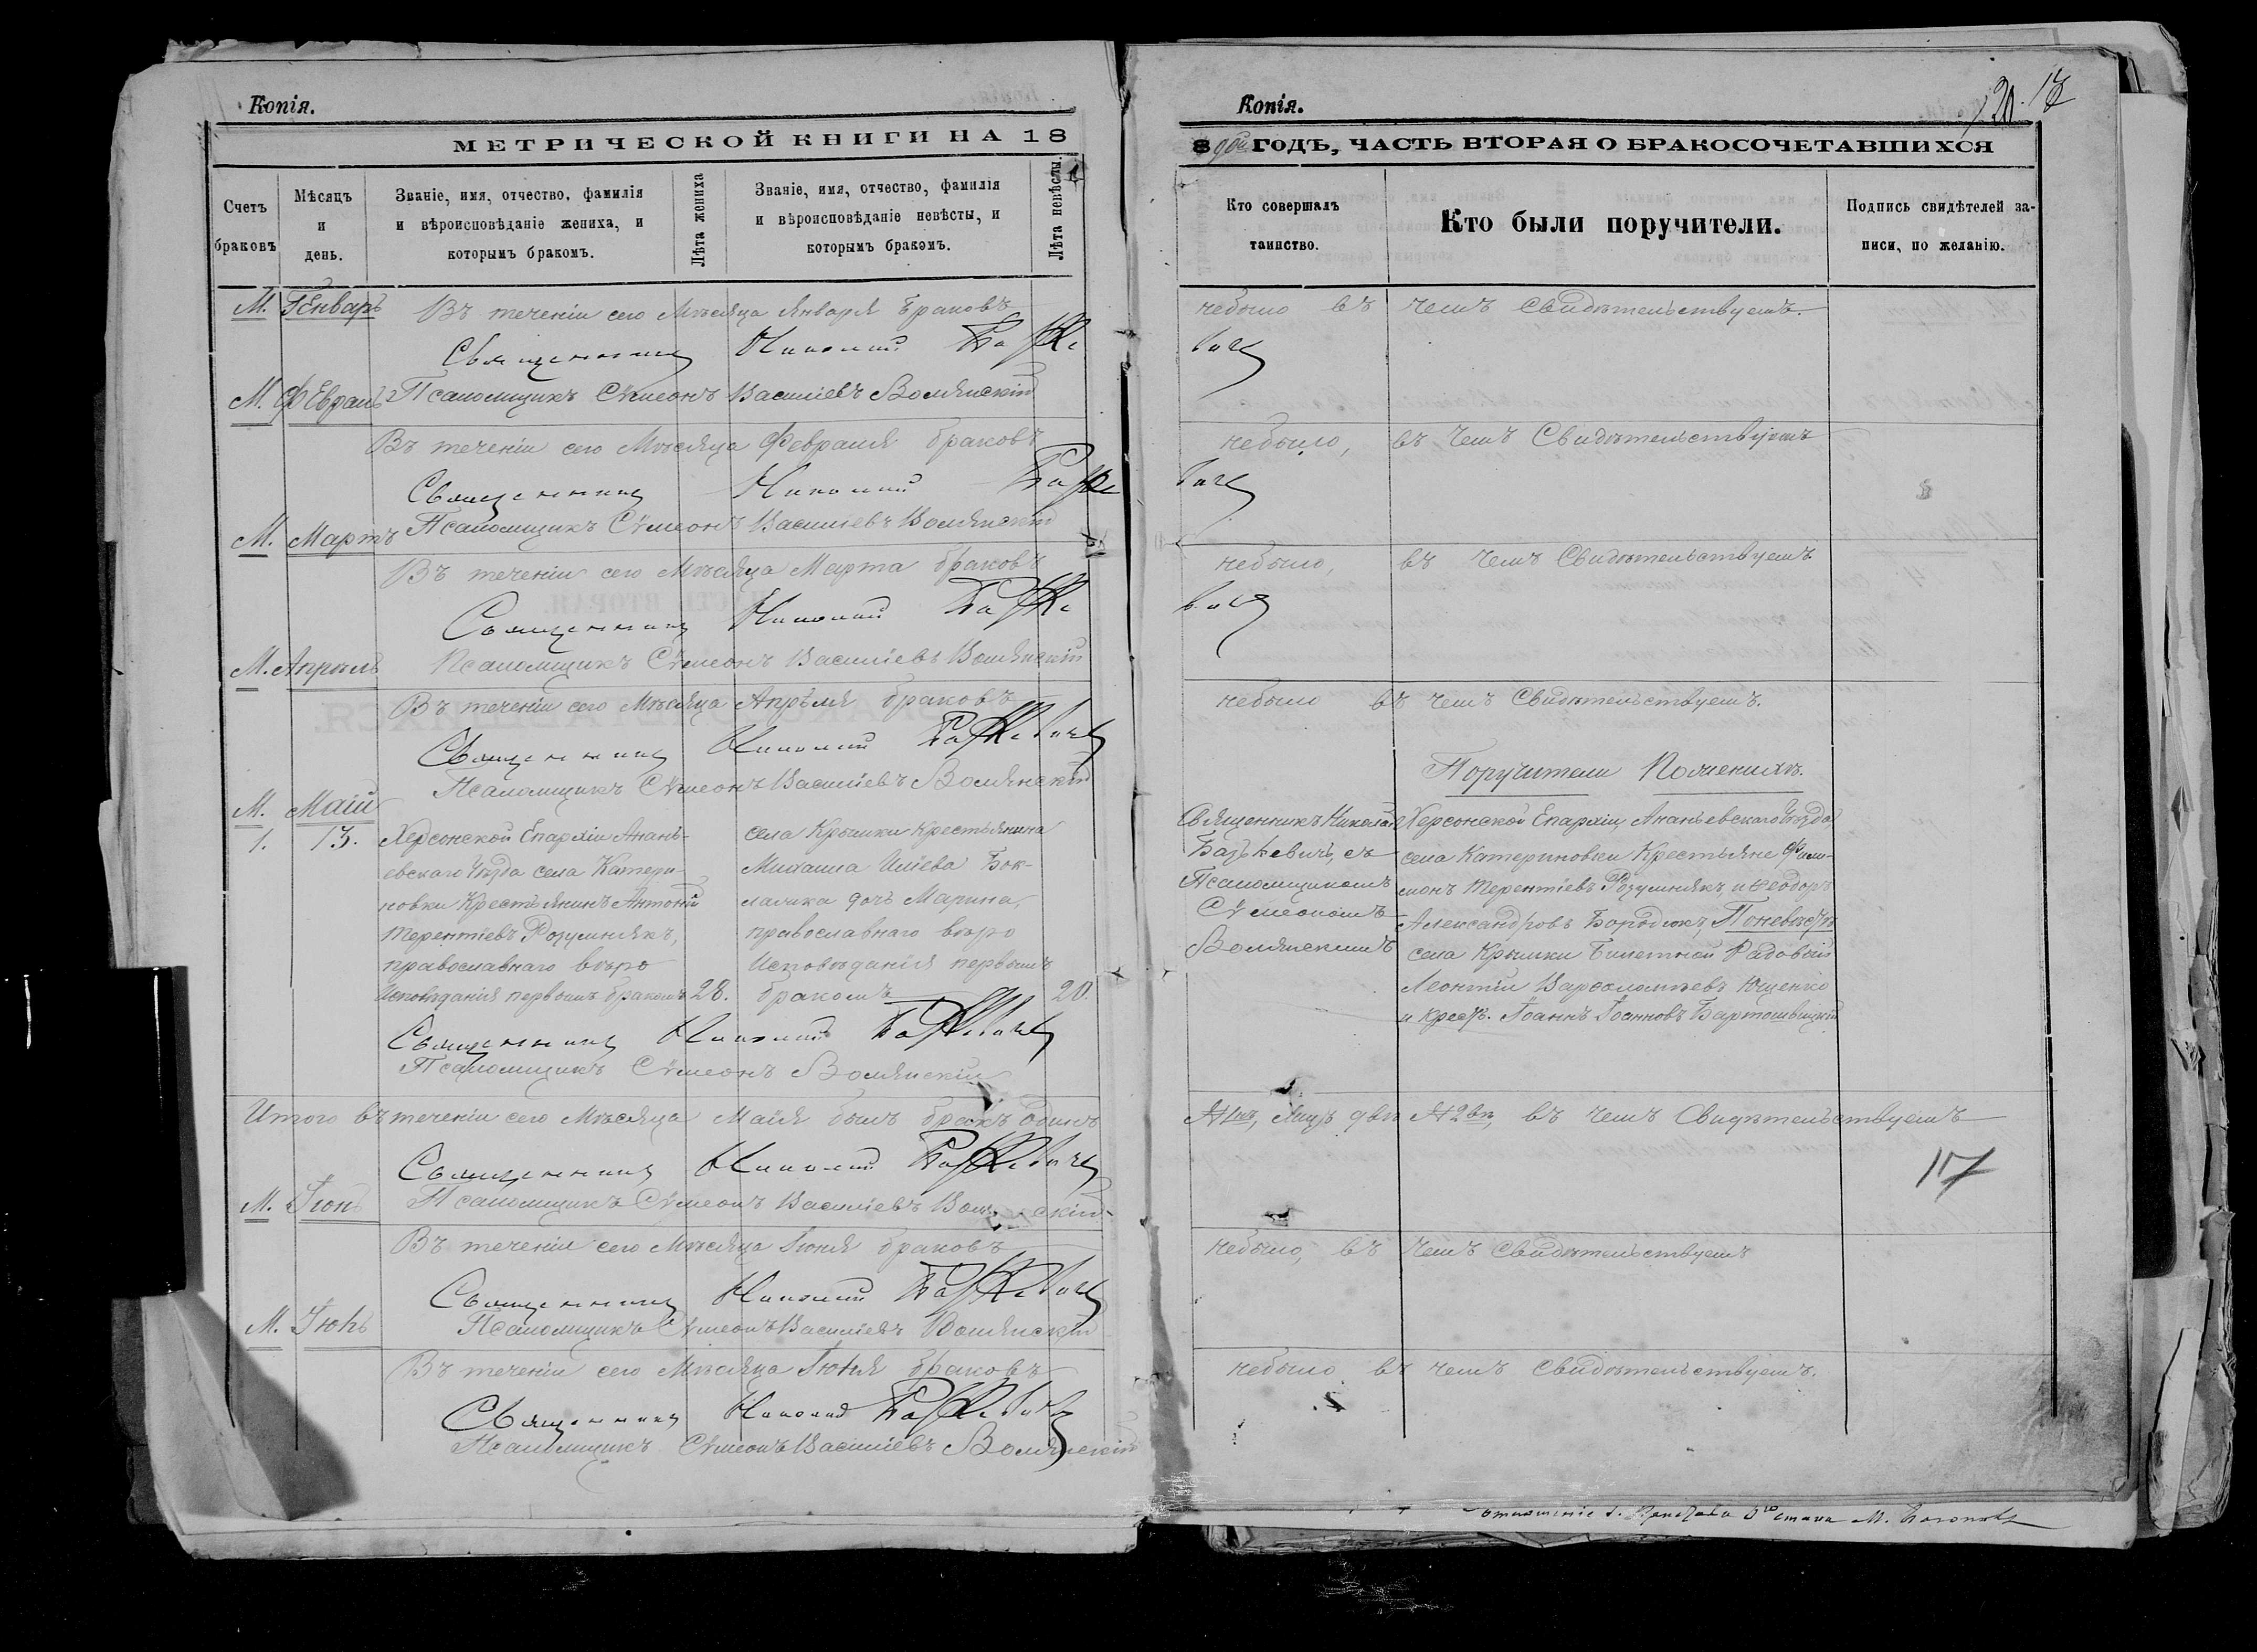 Копія.
МЕТРИЧЕСКОЙ КНИГИ НА 18
Счетъ браковъ
Мѣсяцъ и день.
Званіе, имя, отчество, фамилія и вѣроисповѣданіе жениха, и которымъ бракомъ.
Лѣта жениха
Званіе, имя, отчество, фамилія и вѣроисповѣданіе невѣсты, и которымъ бракомъ.
Лѣта невѣсты.
М. Генварь
Въ теченіи сего Мѣсяца Января браковъ
Священникъ Николай
М. Февраль Псаломщикъ Сѵмеонъ Василіевъ Волянскій
Въ теченіи сего Мѣсяца Февраля браковъ
Священникъ Николай
М. Мартъ Псаломщикъ Сѵмеонъ Василіевъ Волянскій
Въ теченіи сего Мѣсяца Марта браковъ
Священникъ Николай
М. Апрѣль Псаломщикъ Сѵмеонъ Василіевъ Волянскій
Въ теченіи сего Мѣсяца Апрѣля браковъ
Священникъ Николай
Псаломщикъ Сѵмеонъ Василіевъ Волянскій
М. Маій
1. 13. Херсонской Епархіи Анань-
евскаго Уѣзда села Катери-
новки Крестьянинъ Антоній
Терентіевъ Розумнякъ,
православнаго вѣро
исповѣданія первымъ бракомъ 28.
села Крымки Крестьянина
Михаила Иліева Бок-
дочь Марина,
православнаго вѣро
исповѣданія первымъ
бракомъ 20.
Священникъ Николай
Псаломщикъ Сѵмеонъ Волянскій
Итого въ теченіи сего Мѣсяца Маія былъ бракъ одинъ
Священникъ Николай
М. Іюнь Псаломщикъ Сѵмеонъ Василіевъ
Въ теченіи сего Мѣсяца Іюня браковъ
Священникъ Николай
М. Іюль Псаломщикъ Сѵмеонъ Василіевъ Волянскій
Въ теченіи сего Мѣсяца Іюля браковъ
Священникъ Николай
Псаломщикъ Сѵмеонъ Василіевъ Волянскій
Копія.
ГОДЪ, ЧАСТЬ ВТОРАЯ О БРАКОСОЧЕТАВШИХСЯ
Кто совершалъ таинство.
Кто были поручители.
Подпись свидѣтелей за-
писи, по желанію.
небыло въ чемъ свидѣтельствуемъ.
небыло, въ чемъ Свидѣтельствуемъ
небыло, въ чемъ Свидѣтельствуемъ
небыло въ чемъ Свидѣтельствуемъ.
Поручители Пожениху.
Священникъ Николай
съ
Псаломщикомъ
Сѵмеономъ
Волянскимъ
Херсонской Епархіи, Ананьевскаго Уѣзда,
села Катериновки Крестьяне Фили-
монъ Терентіевъ Розумнякъ, и Ѳеодоръ
Александровъ Поневѣстѣ
села Крымки Билетной Рядовый
Леонтій Варѳоломѣевъ Ющенко
и Крест. Іоаннъ Іоанновъ
№1нъ, лицъ двѣ №2вѣ, въ чемъ Свидѣтельствуемъ
117
небыло, въ чемъ свидѣтельствуемъ
небыло въ чемъ свидѣтельствуемъ.